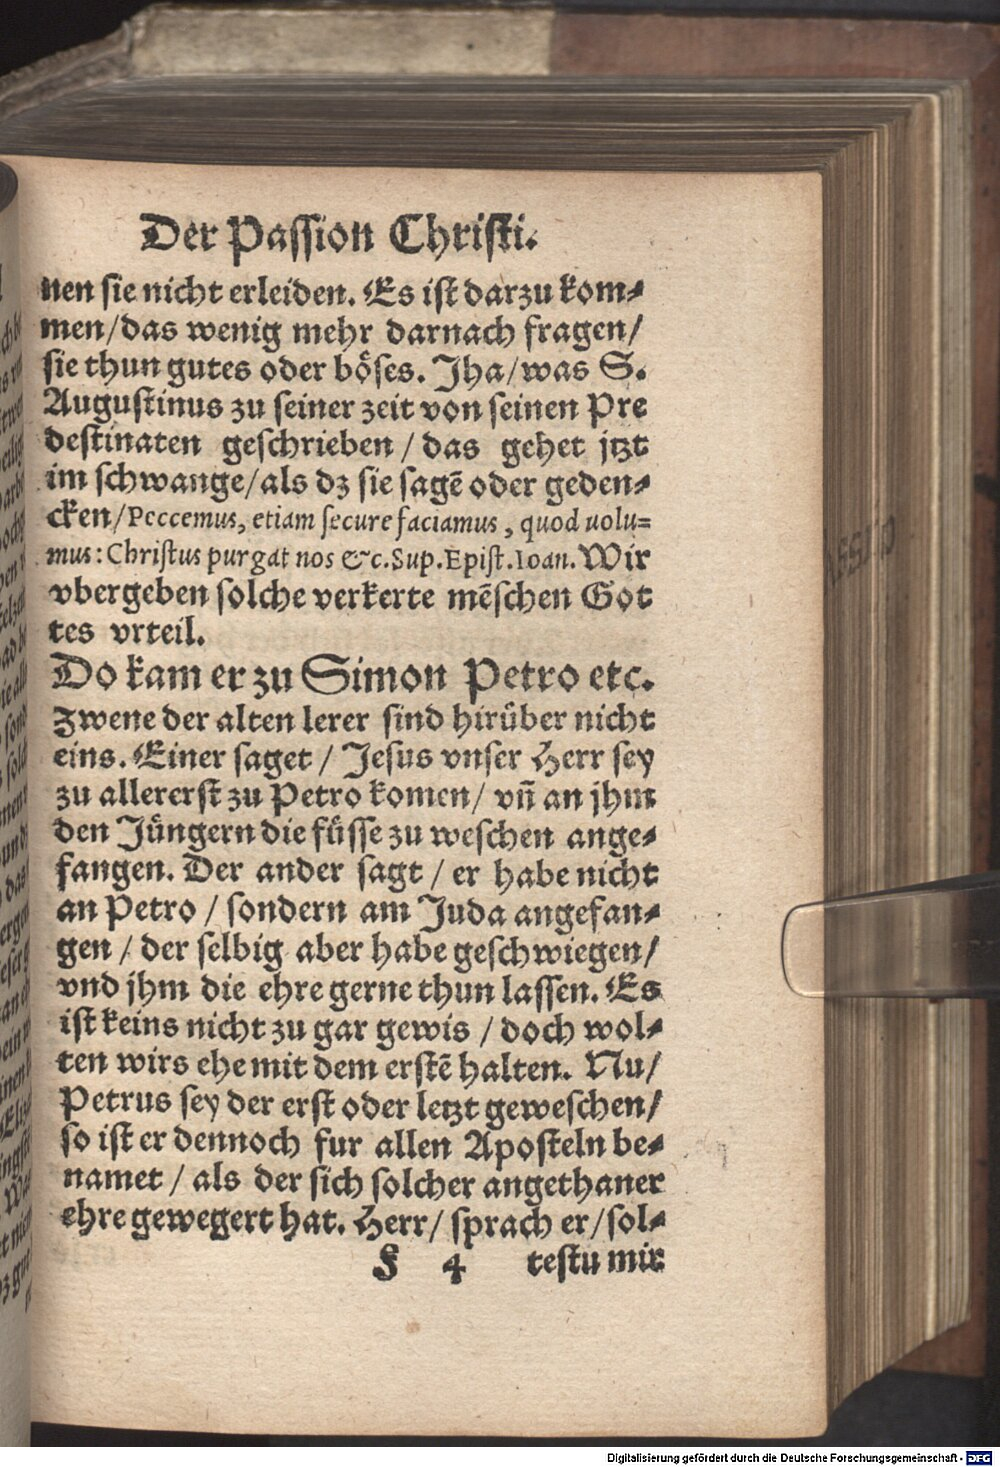 Der Passion Christi.
nen sie nicht erleiden. Es ist darzu kom⸗
men/das wenig mehr darnach fragen/
sie thun gutes oder bo&#x364;ses. Jha/was S.
Augustinus zu seiner zeit von seinen Pre
destinaten geschrieben / das gehet jtzt
im schwange/als dz sie sagẽ oder geden⸗
cken/Peccemus, etiam secure faciamus, quod uolu=
mus: Christus purgat nos &c. Sup. Epist. Ioan. Wir
vbergeben solche verkerte mẽschen Got
tes vrteil.
Do kam er zu Simon Petro etc.
Zwene der alten lerer sind hirüber nicht
eins. Einer saget / Jesus vnser Herr sey
zu allererst zu Petro komen/ vñ an jhm
den Jüngern die füsse zu weschen ange⸗
fangen. Der ander sagt / er habe nicht
an Petro / sondern am Juda angefan⸗
gen / der selbig aber habe geschwiegen/
vnd jhm die ehre gerne thun lassen. Es
ist keins nicht zu gar gewis / doch wol⸗
ten wirs ehe mit dem erstẽ halten. Nu/
Petrus sey der erst oder letzt geweschen/
so ist er dennoch fur allen Aposteln be⸗
namet / als der sich solcher angethaner
ehre gewegert hat. Herr/ sprach er/sol⸗
F 4 testu mir
Digitalisierung gefördert durch die Deutsche Forschungsgemeinschaft - DFG